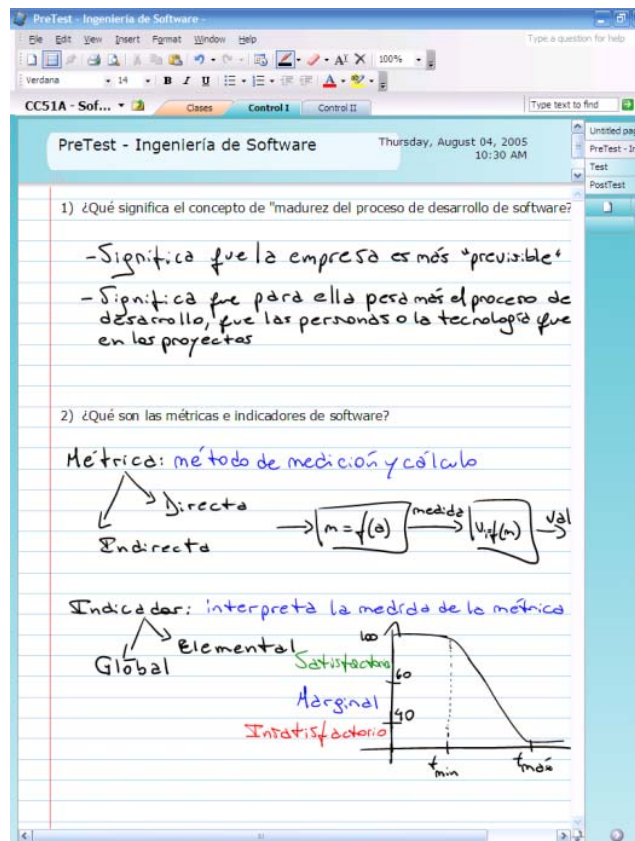 PreTest - Ingeniería de Software -
File Edit View Insert Format Window Help
Type a question for help
100%
Verdana 14 B I U
CC51A - Sof... Clases Control I Control II
Type text to find
PreTest - Ingeniería de Software
Thursday, August 04, 2005
10:30 AM
Untitled pag
PreTest - In
Test
PostTest
1) ¿Qué significa el concepto de "madurez del proceso de desarrollo de software?
- Significa que la empresa es más "previsible"
- Significa que para ella pesa más el proceso de
desarrollo, que las personas o la tecnología que
en los proyectos
2) ¿Qué son las métricas e indicadores de software?
Métrica: método de medición y cálculo
Directa
Indirecta
m = f(a) medida Vi=f(m) val
Indicador: interpreta la medida de la métrica
Elemental
Global
100
Satisfactorio
60
Marginal
40
Insatisfactorio
tmin tmáx